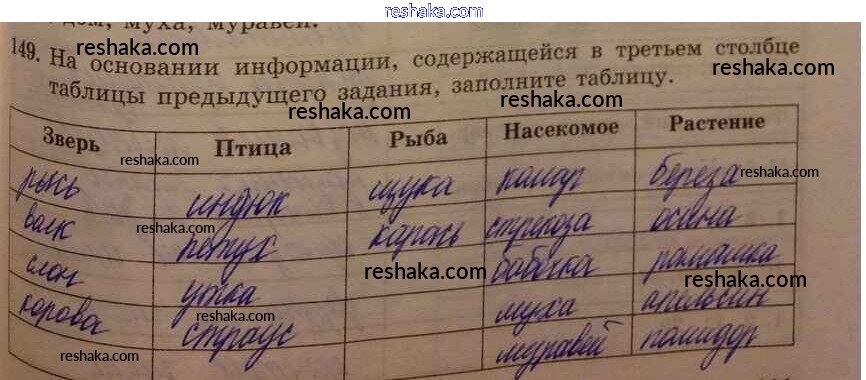 reshaka.com
дом, муха, муравей.
149. На основании информации, содержащейся в третьем столбце
таблицы предыдущего задания, заполните таблицу.
Зверь Птица Рыба Насекомое Растение
рысь индюк щука комар берёза
волк петух карась стрекоза осина
слон утка бабочка ромашка
корова страус муха апельсин
муравей помидор
reshaka.com
reshaka.com
reshaka.com
reshaka.com
reshaka.com
reshaka.com
reshaka.com
reshaka.com
reshaka.com
reshaka.com
reshaka.com
reshaka.com
reshaka.com